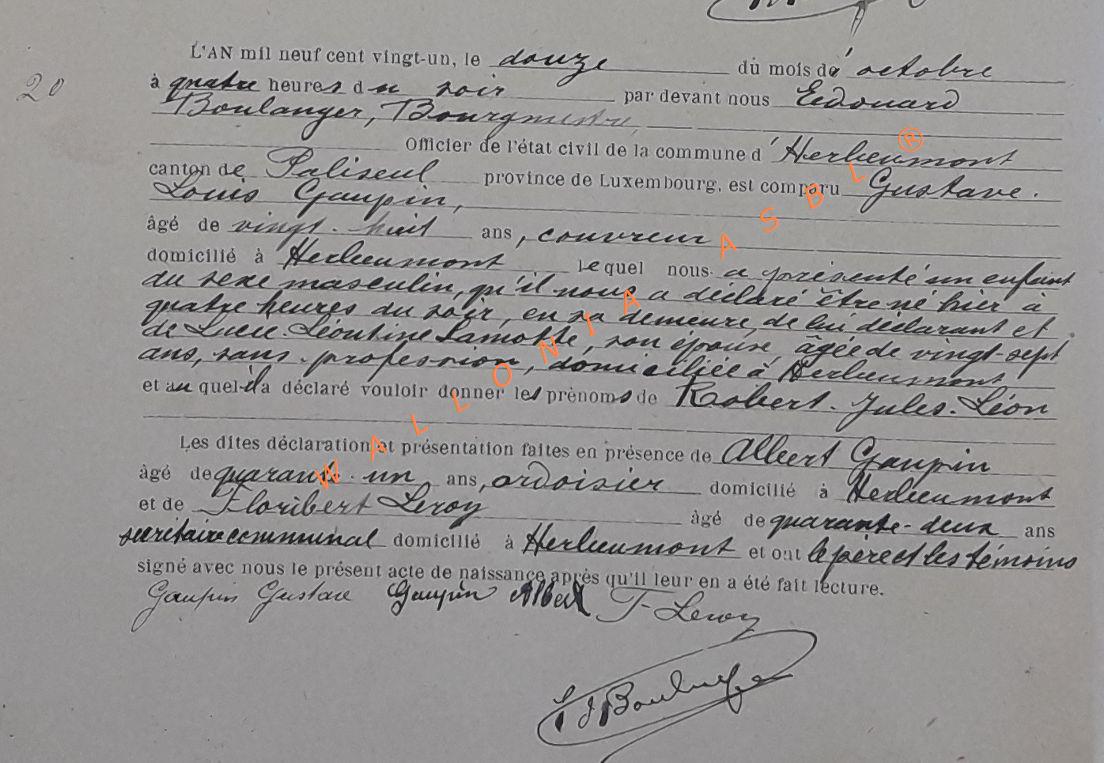 20
L'AN mil neuf cent vingt-un, le douze du mois de octobre
à quatre heures du soir par devant nous Edouard
Boulanger, Bourgmestre,
Officier de l'état civil de la commune d'Herbeumont
canton de Paliseul province de Luxembourg, est comparu Gustave
Louis Gaupin,
âgé de vingt-huit ans, couvreur
domicilié à Herbeumont lequel nous a présenté un enfant
du sexe masculin, qu'il nous a déclaré être né hier à
quatre heures du soir, en sa demeure, de lui déclarant et
de Lucie Léontine Lamotte, son épouse, âgée de vingt-sept
ans, sans profession, domiciliée à Herbeumont
et auquel il a déclaré vouloir donner les prénoms de Robert-Jules-Léon
Les dites déclaration et présentation faites en présence de Albert Gaupin
âgé de quarante-un ans, ardoisier domicilié à Herbeumont
et de Floribert Leroy âgé de quarante-deux ans
secrétaire communal domicilié à Herbeumont et ont le père et les témoins
signé avec nous le présent acte de naissance après qu'il leur en a été fait lecture.
Gaupin Gustave Gaupin Albert F Leroy
Boulanger
WALLONIA ASBL ®